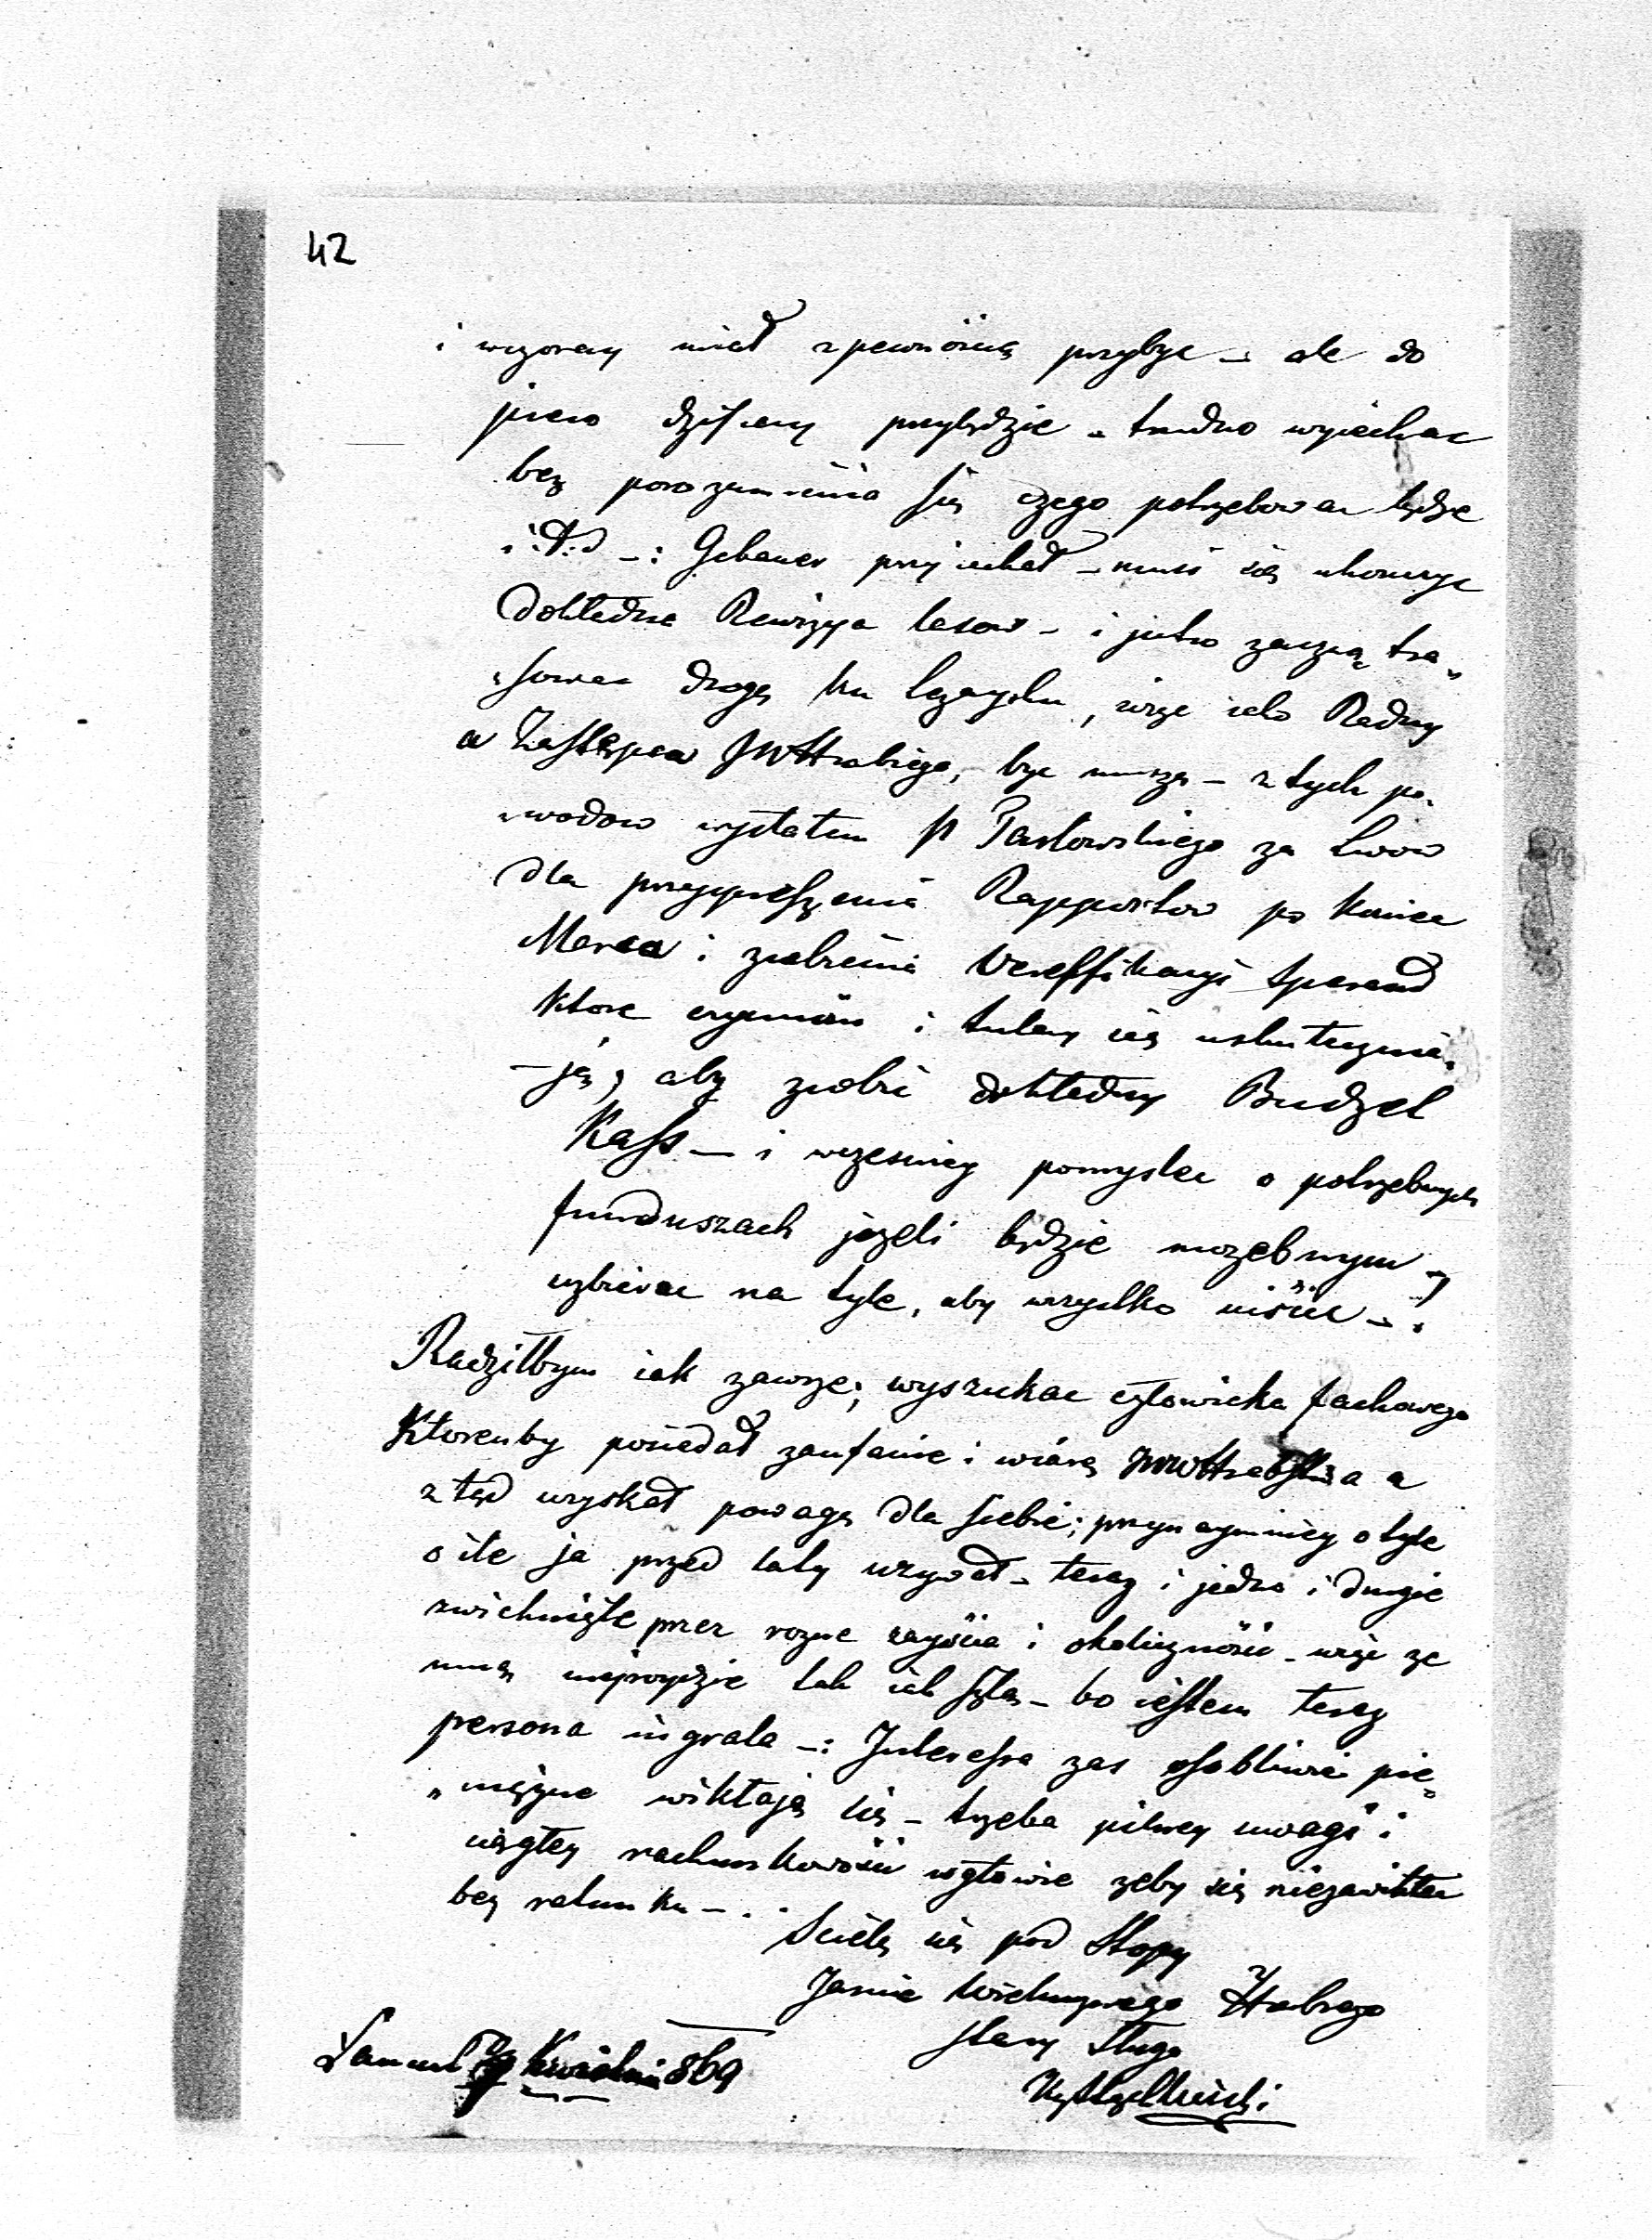 42
i wczoray miał z pewnością przybyc – ale do
piero dzisiay przybędzie – trudno wyiechac
bez porozumienia się czego potrzebowac będzie
i.t.d –: Gebauer przyiechał – musi się ukonczyc
Dokładna Rewizya lasow – i jutro zaczną tra„
„sowac drogę ku Leżaysku, więc iako Radny
a Zastępca JWHrabiego, byc muszę – z tych po„
„wodow wysłałem P Pawłowskiego za Lwow
dla przyspieszenia Rapportow po koniec
Marca i zrobienia Wereffikacyi sperand
ktore czynnie i tutay się uskuteczniá„
–ją, aby zrobic dokładny Budzet
Kass – i wczesniey pomyslec o potrzebnych
funduszach jezeli będzie mozebnym –
uzbierac na tyle, aby wszystko uiścic – .
Radziłbym iak zawsze; wyszukac człowieka fachowego
Ktorenby posiedał zaufanie i wiárę JWWHrabstwa a
ztąd uzyskał powagę dla siebie; przynaymniey o tyle
o ile ja przed laty uzywał – teraz i jedno i drugie
zwichnięte przez rozne zayścia i okoliczności – więc ze
mną nieprzydzie tak iak szło – bo iestem teraz
persona ingrata –: Interessa zas osobliwie pie„
„niężne wikłają się – trzeba pilney uwagi i
ciągłey rachunkowości w głowie zeby się niezawikłac
bez ratunku – . .
Scielę się pod Stopy
Jasnie Wielmoznego Hrabiego
stary Sługa
Łancut 7/9 Kwietnia 869